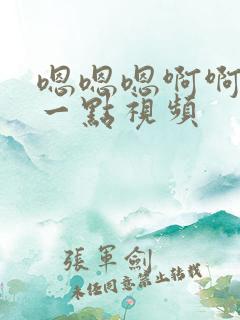 嗯嗯嗯啊啊
一點視頻
張軍劍
未经同意禁止转载